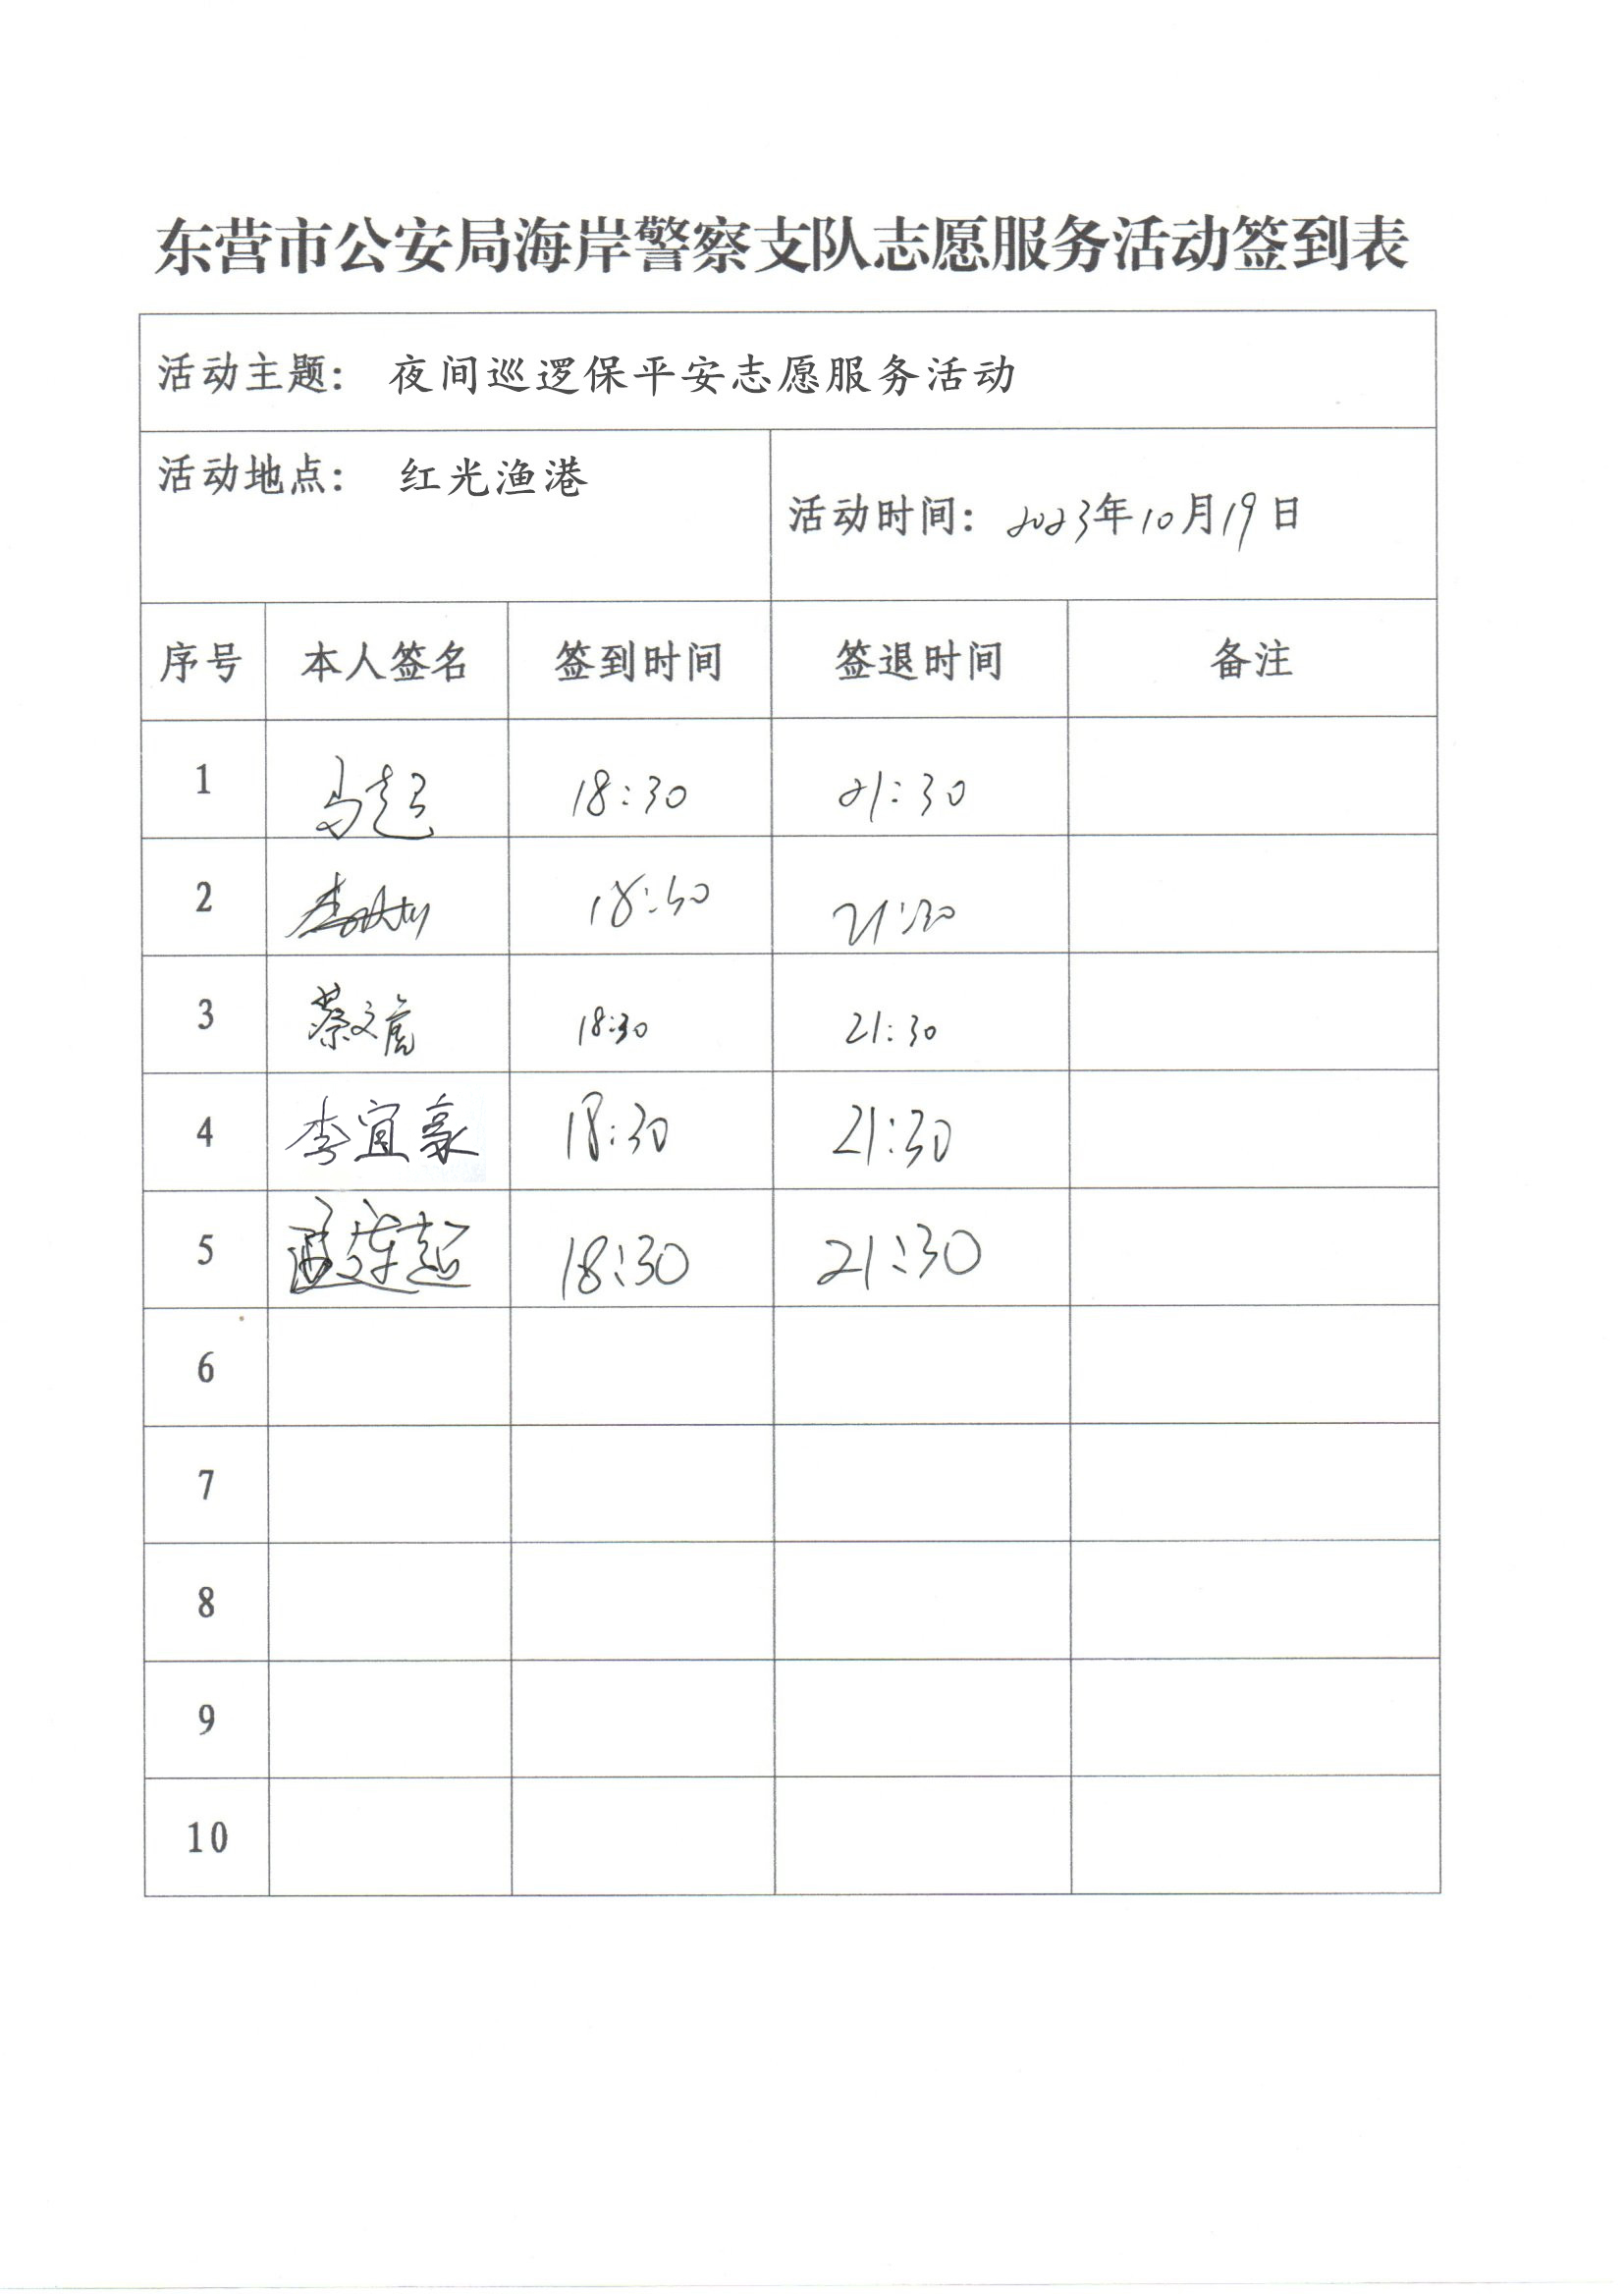 东营市公安局海岸警察支队志愿服务活动签到表
活动主题： 夜间巡逻保平安志愿服务活动
活动地点： 红光渔港
活动时间：2023年10月19日
序号 本人签名 签到时间 签退时间 备注
1 马超 18:30 21:30
2 18:30 21:30
3 蔡文虎 18:30 21:30
4 李宜豪 18:30 21:30
5 孟连超 18:30 21:30
6
7
8
9
10